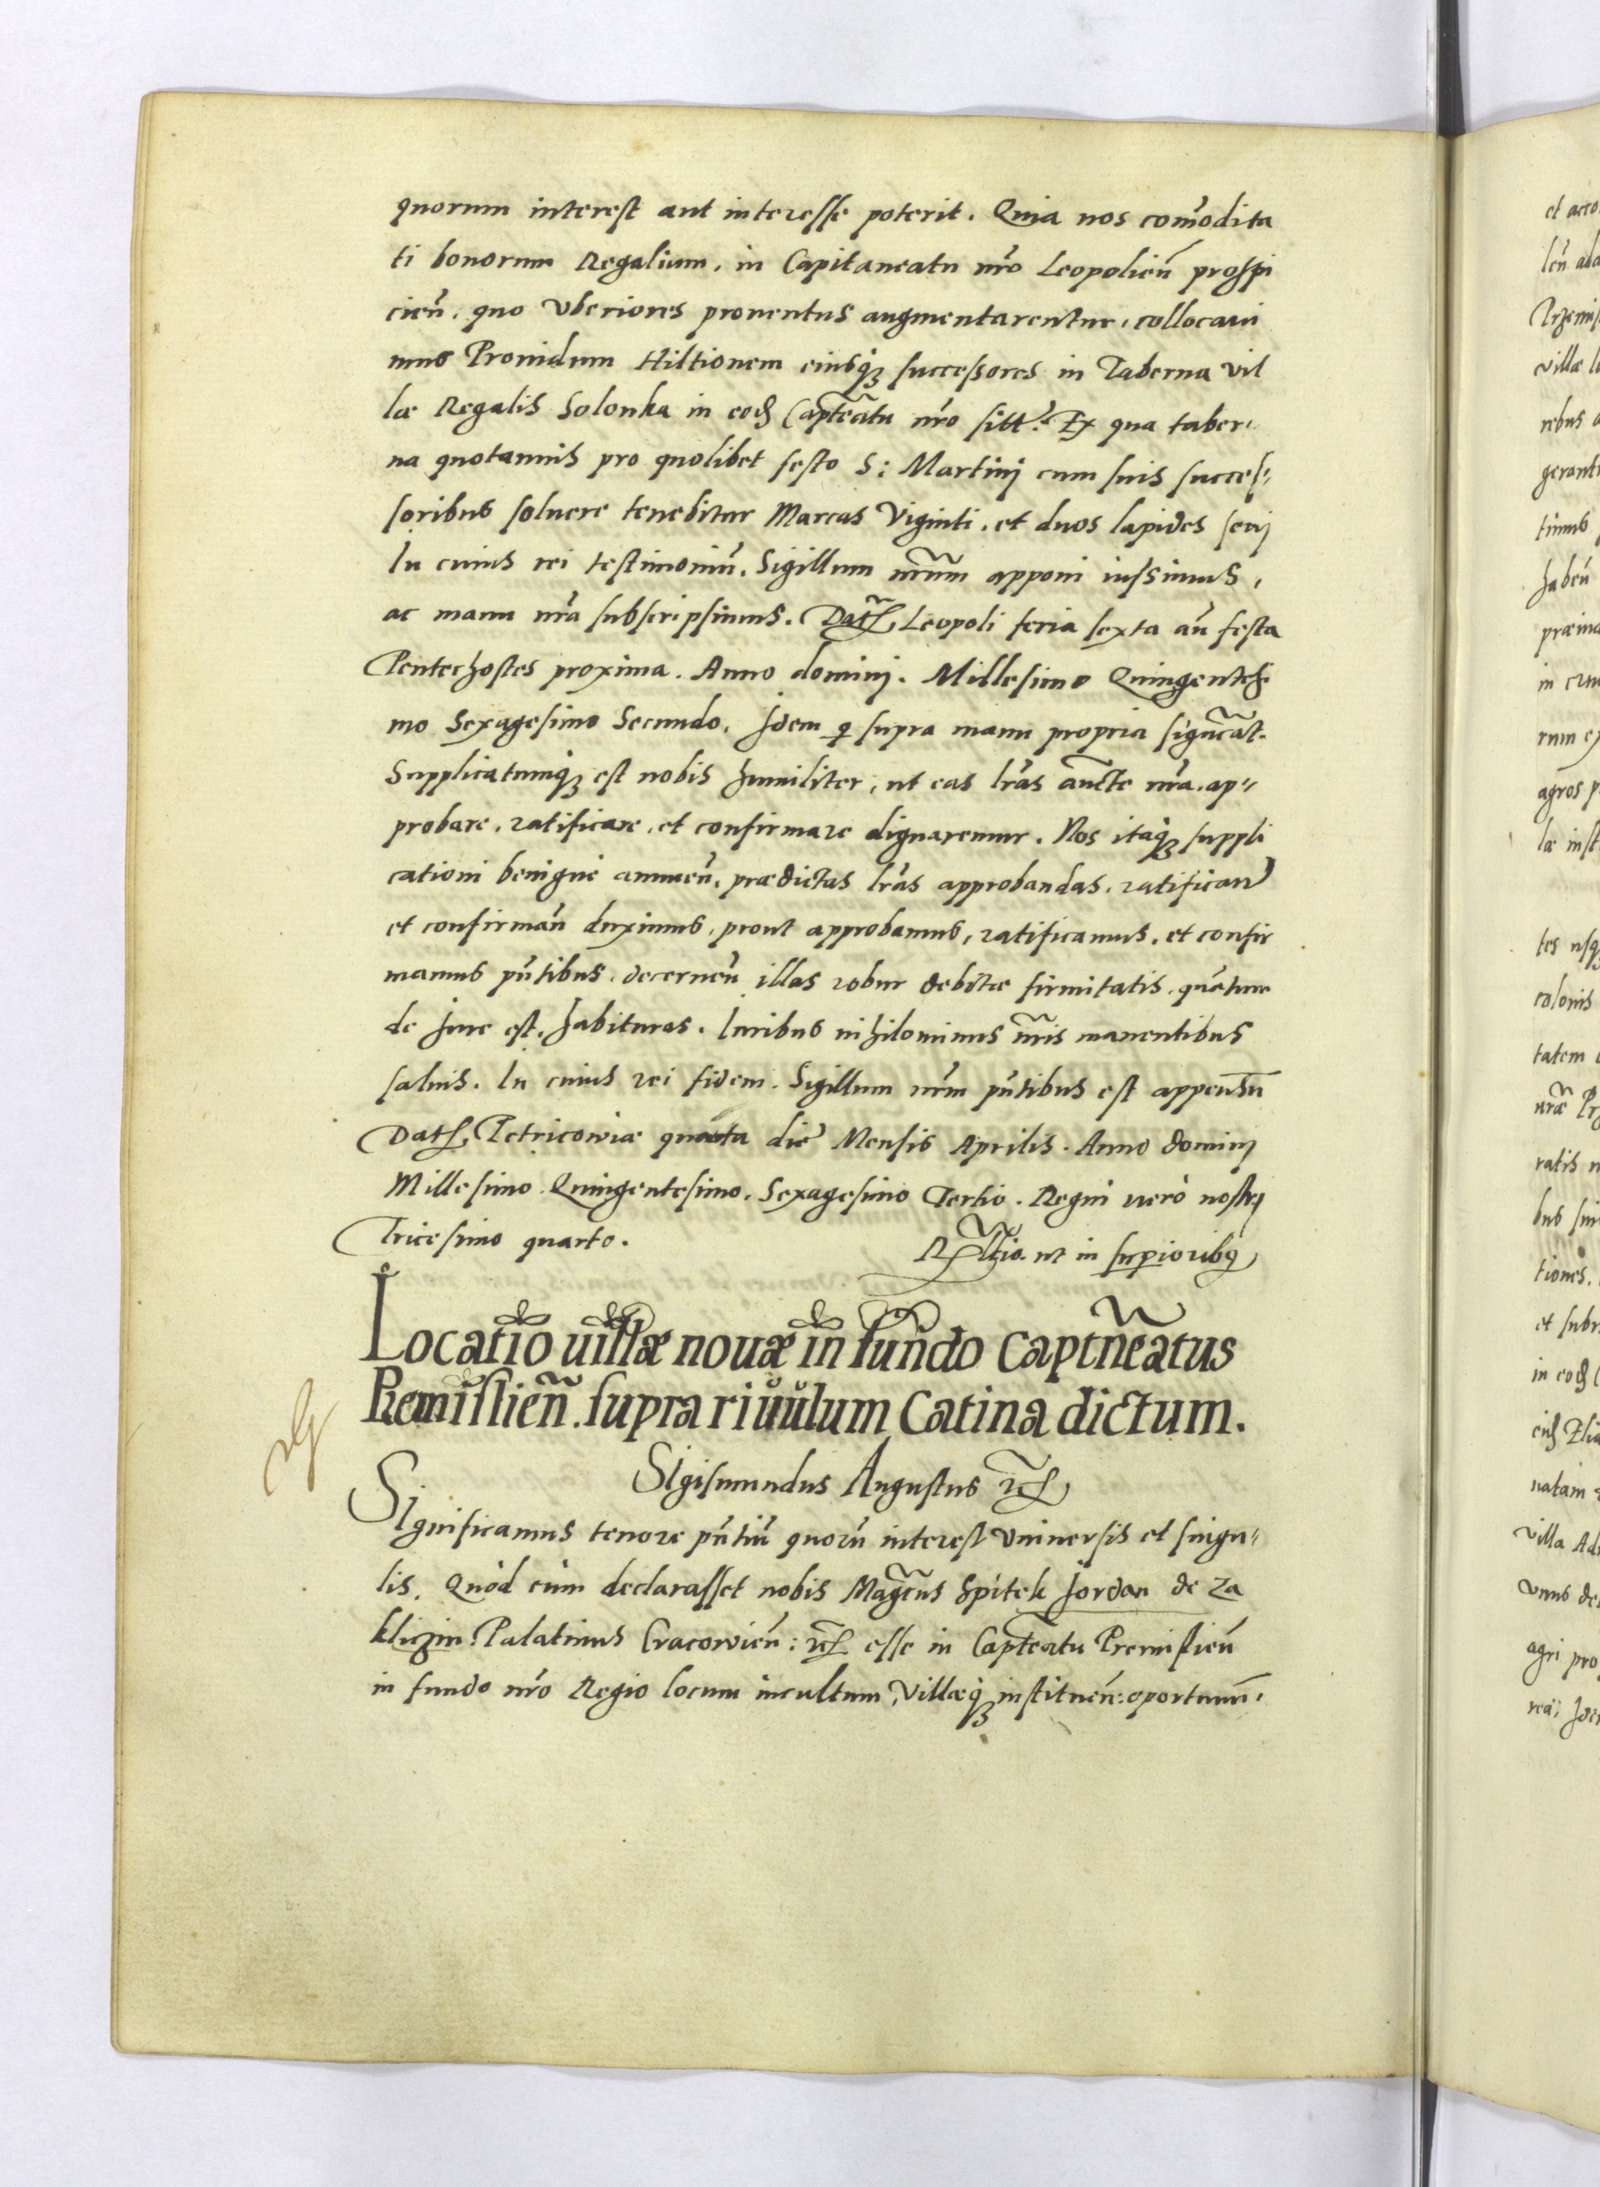 quorum interest aut interesse poterit. Quia nos com̃odita
ti bonorum Regalium, in Capitaneatu nr̃o Leopolien̄ prospi
cien̄. quo vberiores prouentus augmentarentur, collocaui
mus Prouidum Hiltionem eiusq̃ꝫ successores in Taberna vil
læ Regalis Solonka in eod̃ Capt̃eatu nr̃o sitt̃. Ex qua taber,
na quotannis pro quolibet festo S: Martinj cum suis succes,,
soribus soluere tenebitur Marcas Viginti, et duos lapides seuj
In cuius rei testimoniū. Sigillum nr̃um apponi iussimus,
ac manu nr̃a subscripsimus. Dat̃. Leopoli feria sexta an̄ festa
Pentechostes proxima. Anno dominj. Millesimo Quingentesi
mo Sexagesimo Secundo. Idem q̃ supra manu propria signat̃.
Supplicatumq̃ꝫ est nobis humiliter, ut eas lr̃as aucte nr̃a. ap,,
probare, ratificare, et confirmare dignaremur. Nos itaq̃ꝫ suppli
cationi benigne annuen̄. prædictas lr̃as approbandas, ratifican̄
et confirman̄ duximus, prout approbamus, ratificamus, et confir
mamus pn̄tibus, decernen̄ illas robur debitæ firmitatis, quātum
de jure est, habituras. Iuribus nihilominus nr̃is manentibus
saluis. In cuius rei fidem. Sigillum nr̃m pn̄tibus est appensū
Dat̃, Petricowiæ quarta die Mensis Aprilis. Anno dominj
Millesimo. Quingentesimo. Sexagesimo Tertio. Regni uerò nostrj
Tricesimo quarto.
R̃ltio. ut in supioribq̃
Locatio uillæ nouæ in fundo Captneatus
Premislien̄. supra riuulum Catina dictum.
Sigismundus Augustus r̃c̃
Significamus tenore pn̄tiū quorū interest Vniuersis et singu,,
lis. Quòd cùm declarasset nobis Mag̃cus Spitek Jordan de Za
kliczin Palatinus Cracowien̄: r̃c̃ esse in Capt̃eatu Premislien̄
in fundo nr̃o Regio locum incultum, Villæq̃ꝫ instituen̄: oportunū,